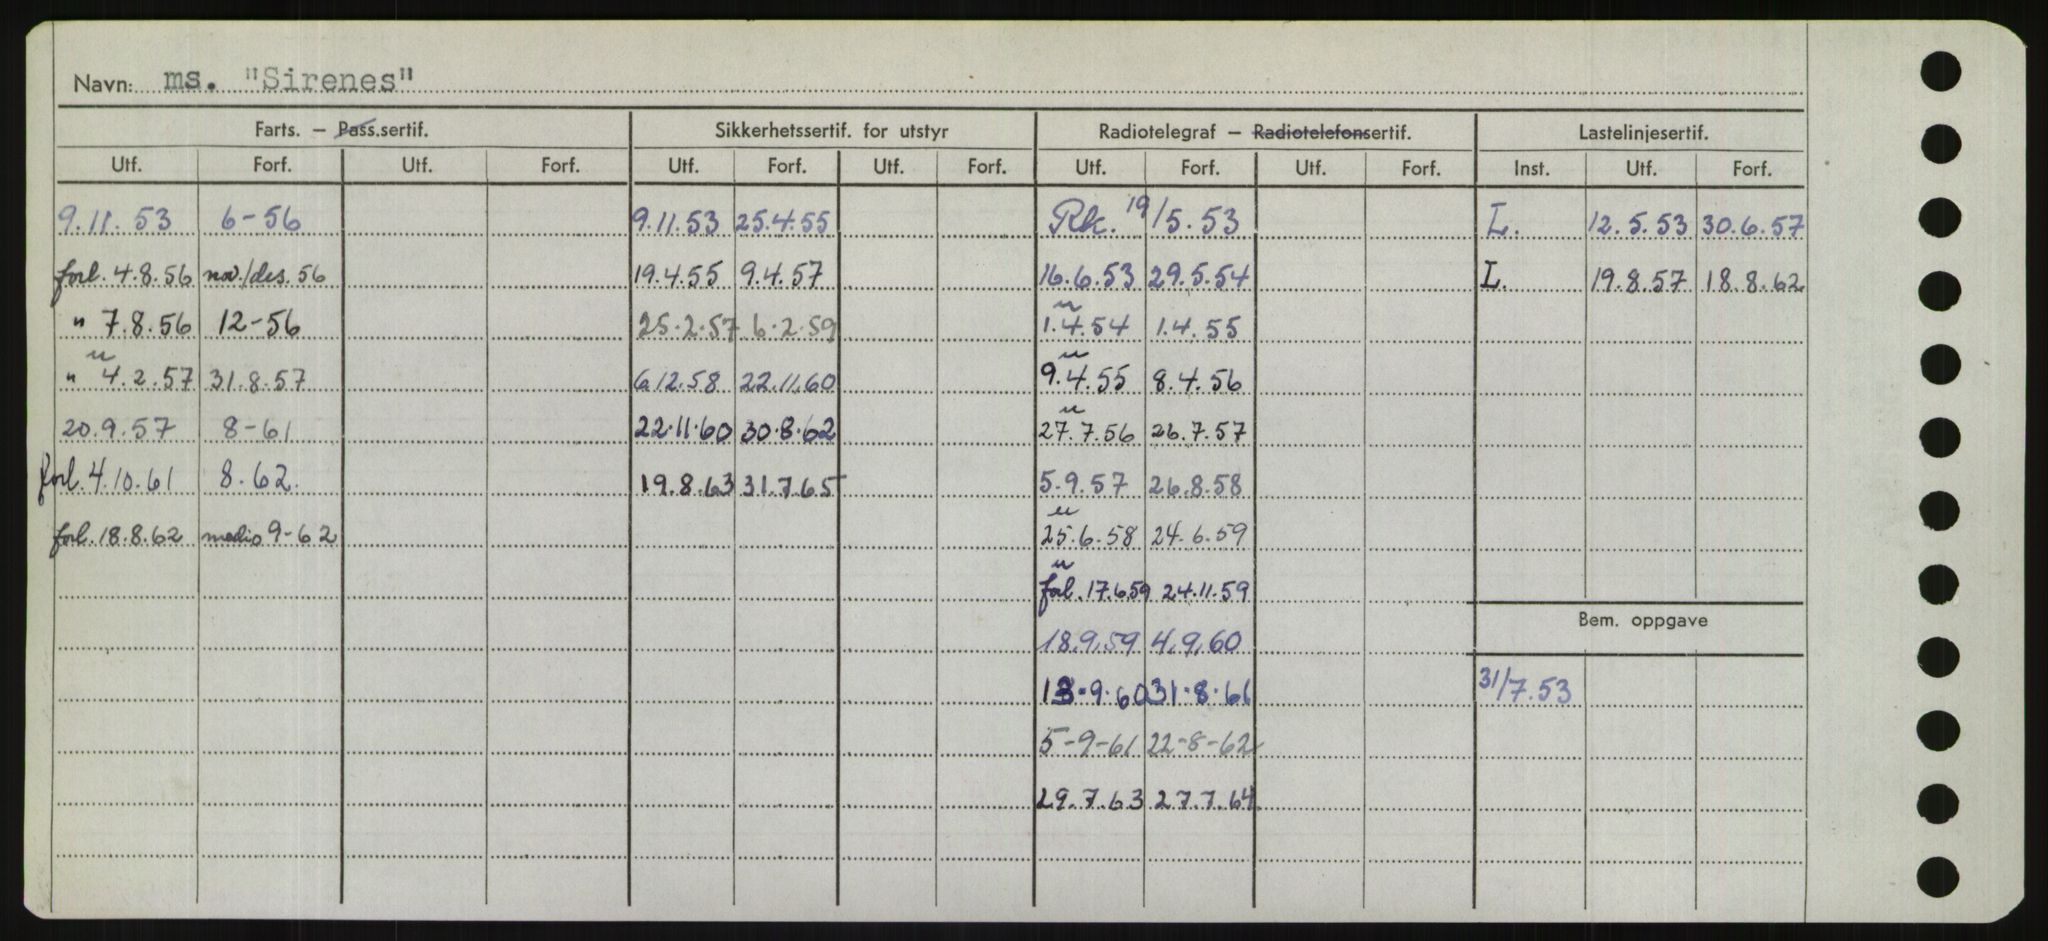 Navn: ms. "Sirenes"
Farts. – Pass.sertif. Sikkerhetssertif. for utstyr Radiotelegraf – Radiotelefonsertif. Lastelinjesertif.
Utf. Forf. Utf. Forf. Utf. Forf. Utf. Forf. Utf. Forf. Utf. Forf. Inst. Utf. Forf.
9.11.53 6-56 9.11.53 25.4.55 Rk. 19/5.53 L. 12.5.53 30.6.57
forl. 4.8.56 nov./des. 56 19.4.55 9.4.57 16.6.53 29.5.54 L. 19.8.57 18.8.62
" 7.8.56 12-56 25.2.57 6.2.59 1.4.54 1.4.55
" 4.2.57 31.8.57 6.12.58 22.11.60 9.4.55 8.4.56
20.9.57 8-61 22.11.60 30.8.62 27.7.56 26.7.57
forl. 4.10.61 8.62. 19.8.63 31.7.65 5.9.57 26.8.58
forl. 18.8.62 medio 9-62 25.6.58 24.6.59
forl. 17.6.59 24.11.59
Bem. oppgave
18.9.59 4.9.60
13.9.60 31.8.61 31/7.53
5-9-61 22-8-62
29.7.63 27.7.64